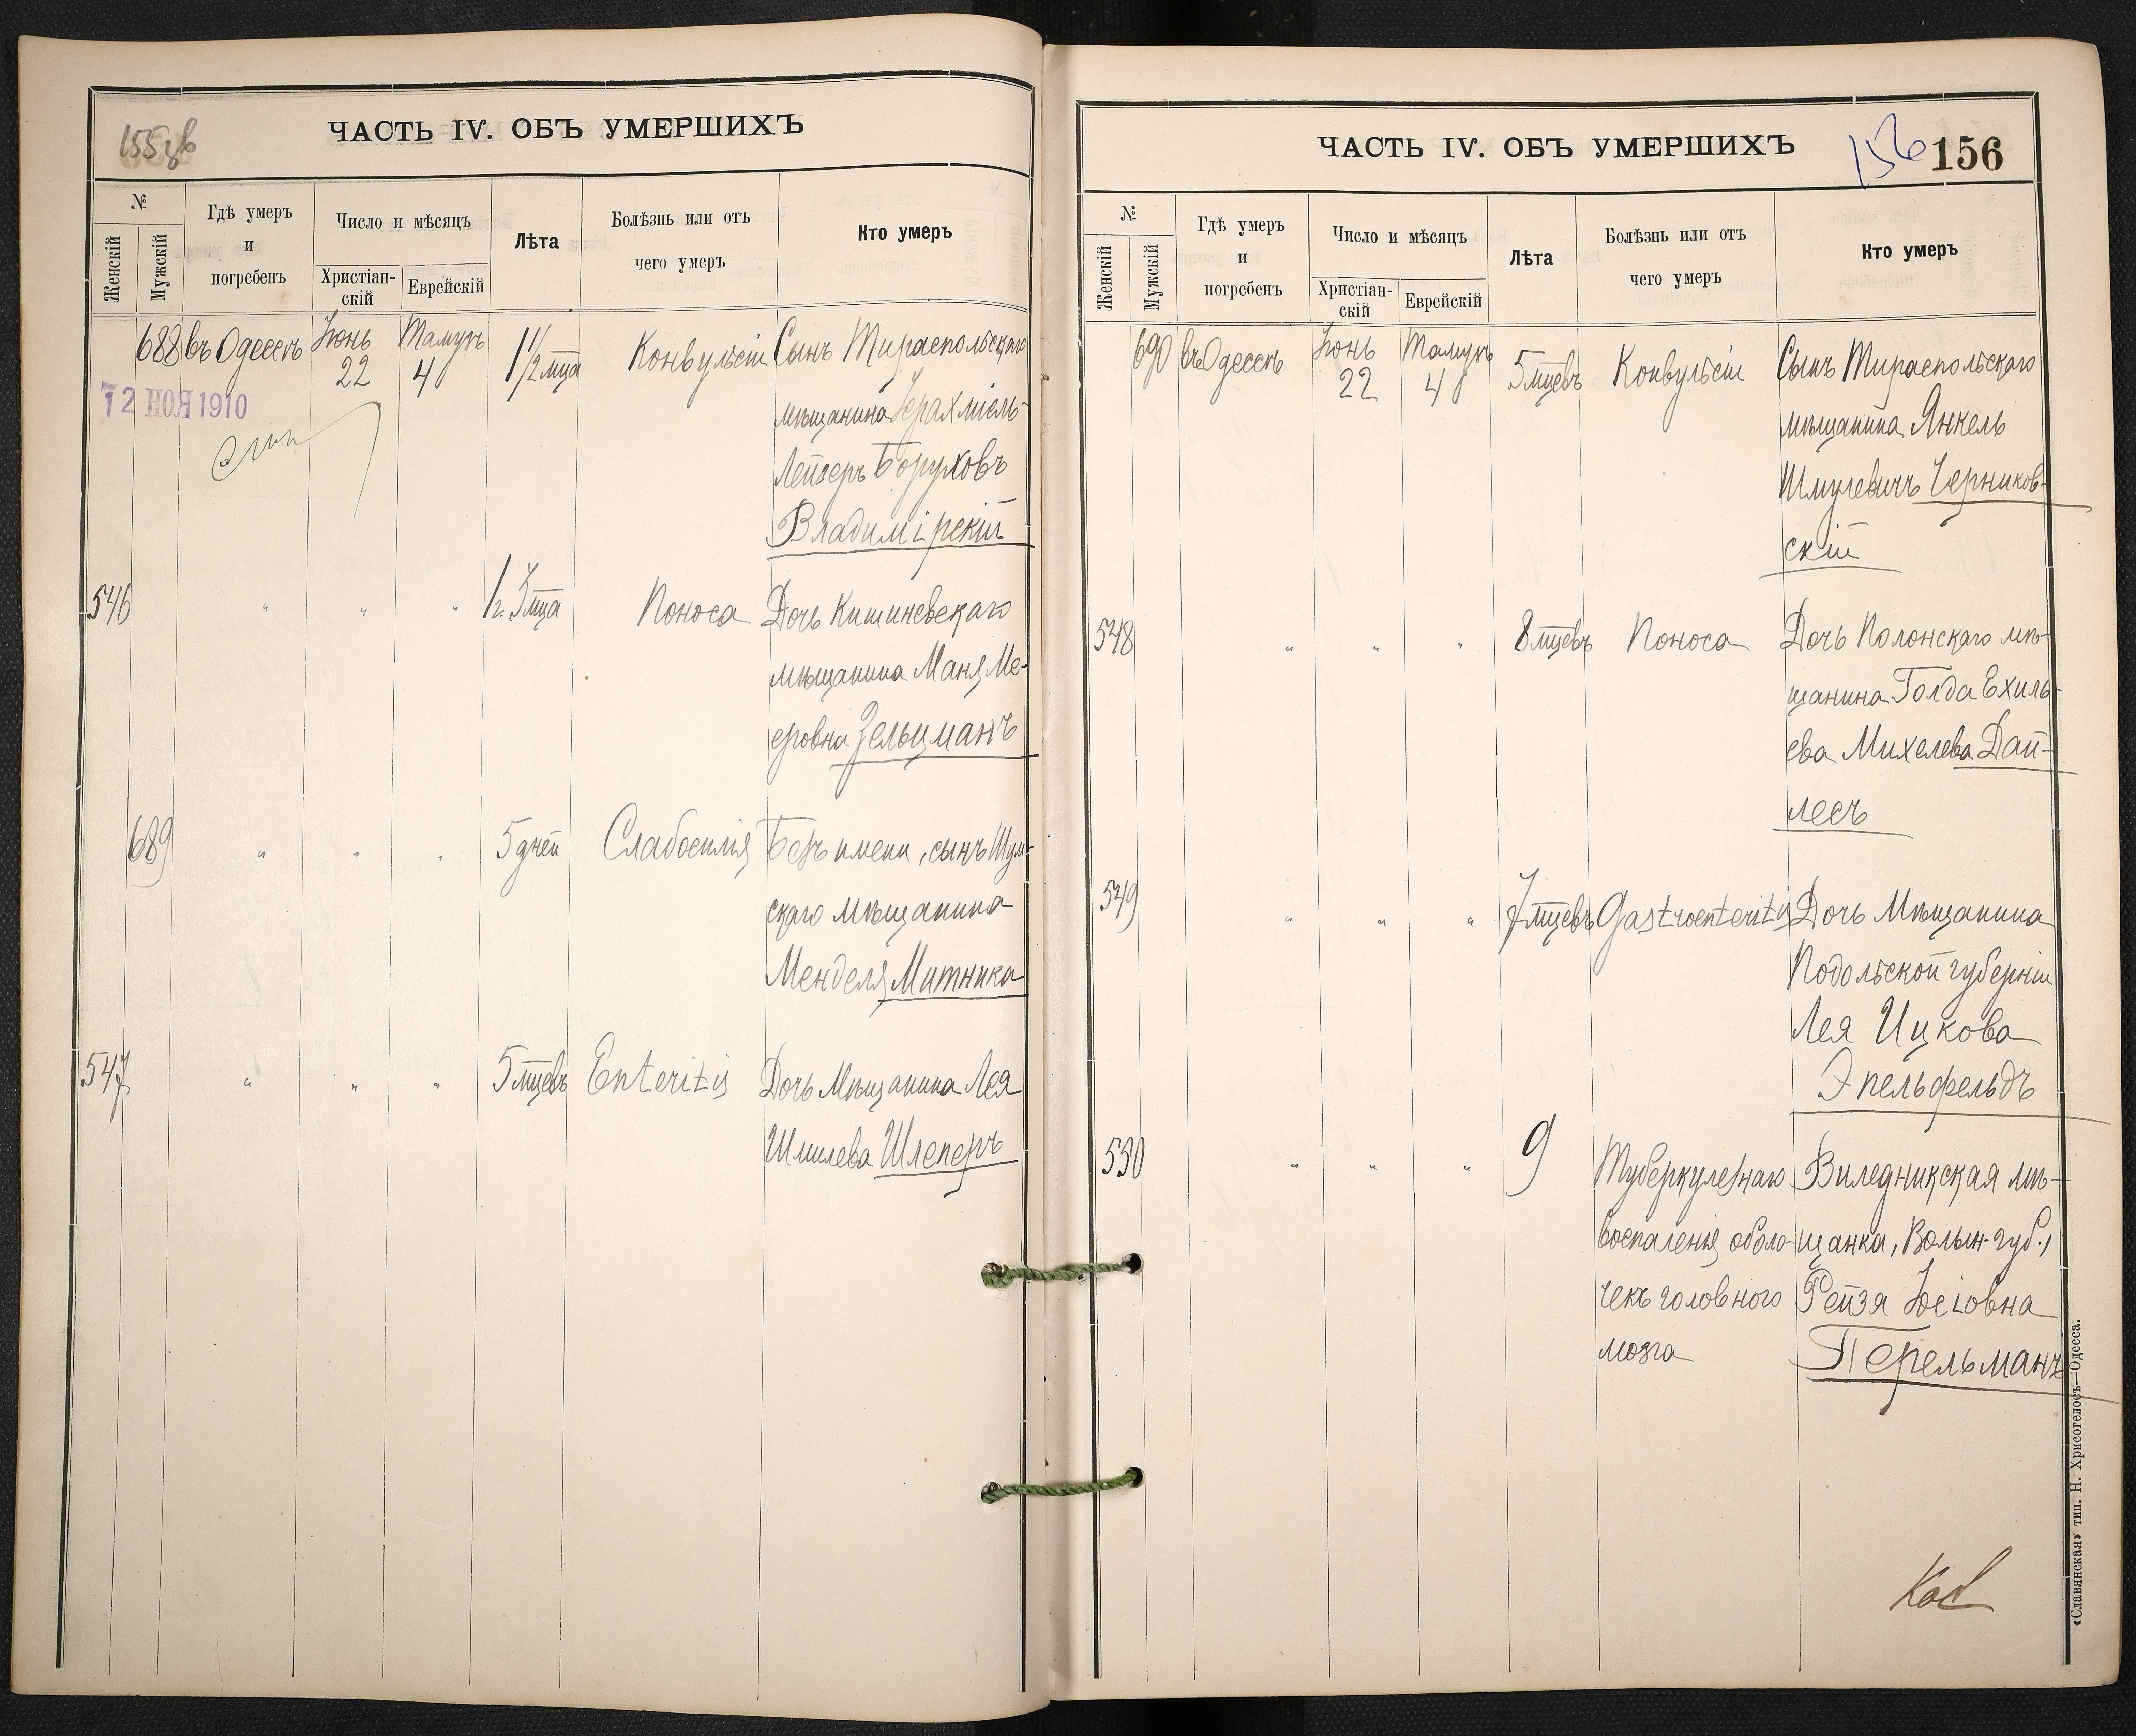 155 зв
ЧАСТЬ IV. ОБЪ УМЕРШИХЪ
№
Женскій
Мужскій
Гдѣ умеръ
и
погребенъ
Число и мѣсяцъ
Христіан-
скій
Еврейскій
Лѣта
Болѣзнь или отъ
чего умеръ
Кто умеръ
688 въ Одессѣ Іюнь 22 Тамузъ 4 1 1/2 мца Конвульсіи Сынъ Тираспольскаго
12 НОЯ 1910
мѣщанина Іерахміель-
Лейзеръ Боруховъ
Владимірскій
546 " " " 1 г. 3 мца Поноса Дочь Кишиневскаго
мѣщанина Маня Ме-
еровна Зельцманъ
689 " " " 5 дней Слабосилія Безъ имени, сынъ Шум-
скаго мѣщанина
Менделя Митника
547 " " " 5 мцевъ Enteritis Дочь Мѣщанина Лея
Шмилева Шлеперъ
ЧАСТЬ IV. ОБЪ УМЕРШИХЪ
156 156
№
Женскій
Мужскій
Гдѣ умеръ
и
погребенъ
Число и мѣсяцъ
Христіан-
скій
Еврейскій
Лѣта
Болѣзнь или отъ
чего умеръ
Кто умеръ
690 въ Одессѣ Іюнь 22 Тамузъ 4 5 мцевъ Конвульсіи Сынъ Тираспольскаго
мѣщанина Янкель
Шмулевичъ Черников-
скій
548 " " " 8 мцевъ Поноса Дочь Полонскаго мѣ-
щанина Голда Ехиль-
ева Михелева Дай-
лесъ
549 " " " 7 мцевъ Gastroenteritis Дочь Мѣщанина
Подольской губерніи
Лея Ицкова
Эпельфельдъ
550 " " " 9 Туберкулезнаго Виледникская мѣ-
воспаленія оболо- щанка, Волын. губ.,
чекъ головного Рейзя Іосіовна
мозга Перельманъ
«Славянская» тип. Н. Хрисогелосъ—Одесса.